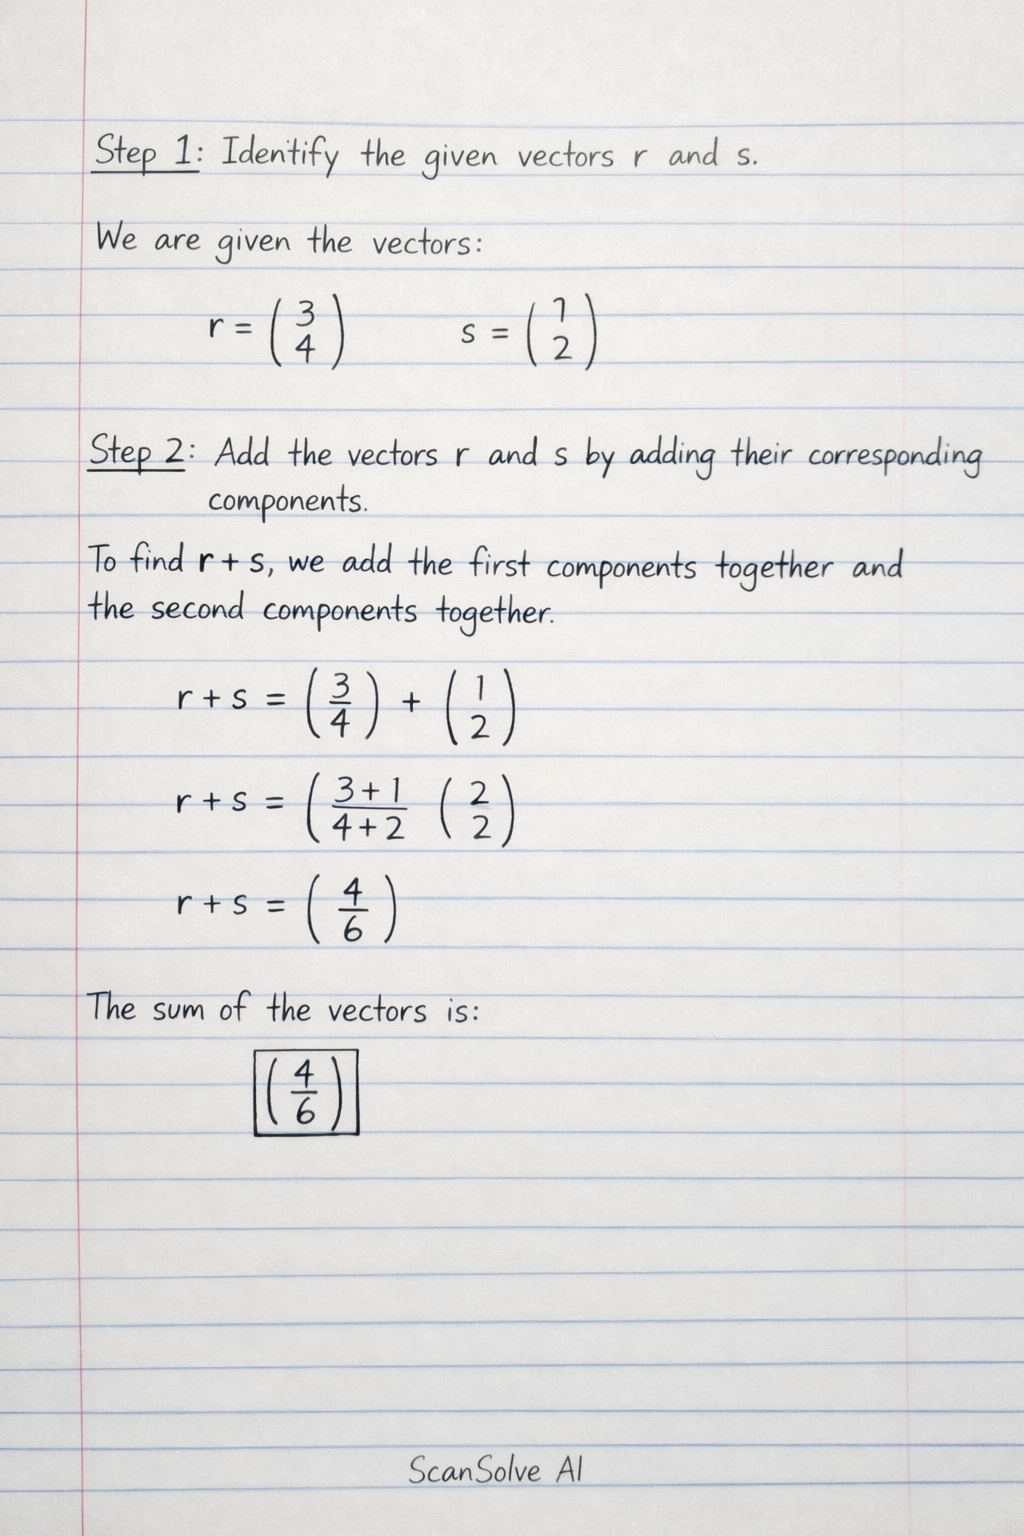 Step 1: Identify the given vectors r and s.
We are given the vectors:
r = (3 4) s = (1 2)
Step 2: Add the vectors r and s by adding their corresponding
components.
To find r + s, we add the first components together and
the second components together.
r + s = (3/4) + (1 2)
r + s = (3+1/4+2 (2 2)
r + s = (4/6)
The sum of the vectors is:
(4/6)
ScanSolve AI